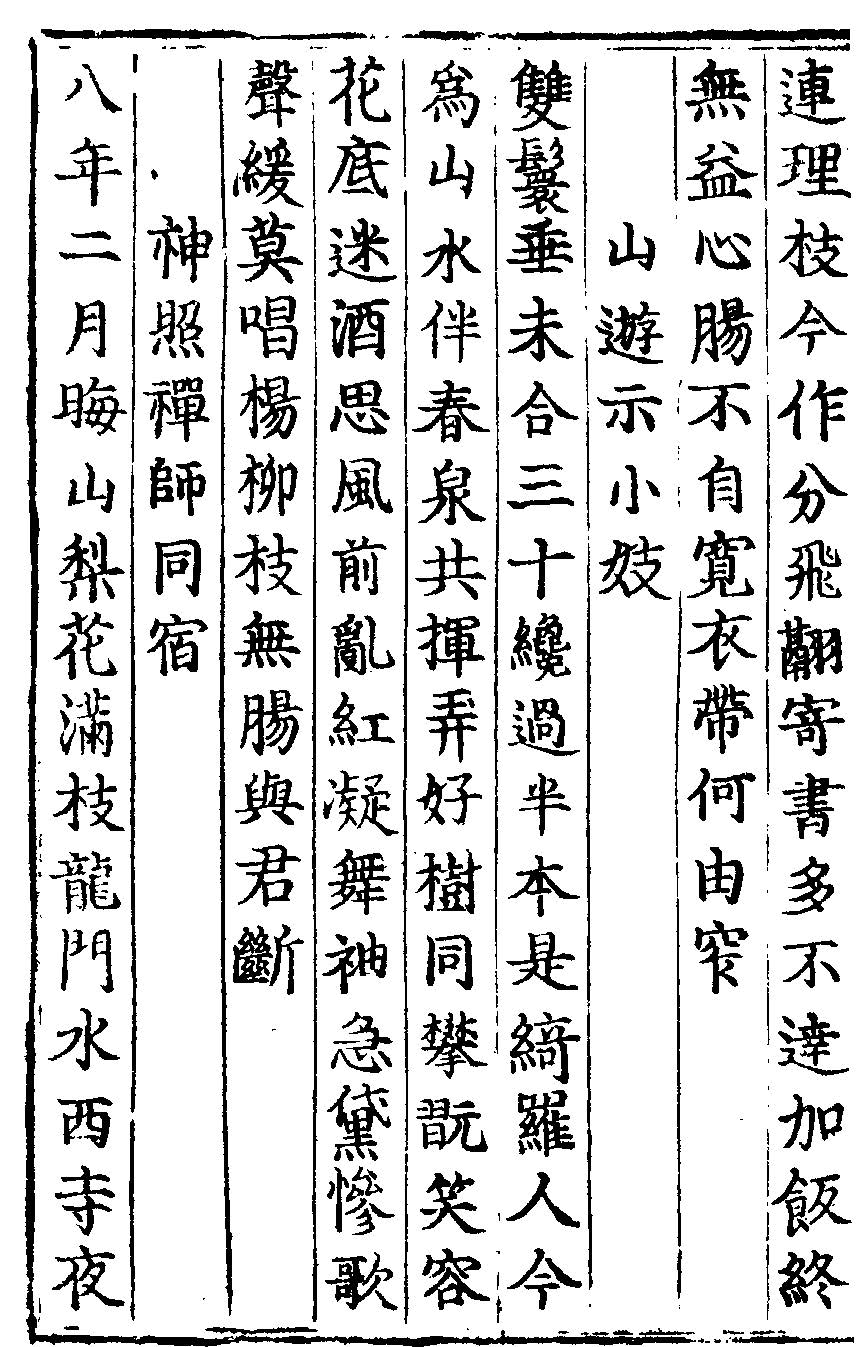 連理枝今作分飛翮寄書多不達加飯終
無益心腸不自寛衣帶何由窄
山遊示小妓
雙鬟垂未合三十纔過半本是綺羅人今
爲山水伴春泉共揮弄好樹同攀翫笑容
花底迷酒思風前亂紅凝舞袖急黛慘歌
聲緩莫唱楊柳枝無腸與君斷
神照禪師同宿
八年二月晦山梨花滿枝龍門水西寺夜